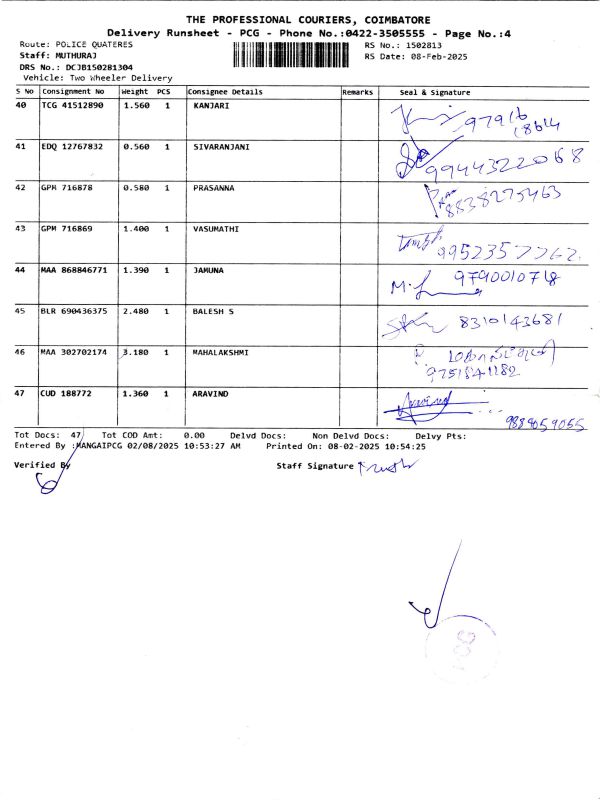 THE PROFESSIONAL COURIERS, COIMBATORE
Delivery Runsheet - PCG - Phone No.:0422-3505555 - Page No.:4
Route: POLICE QUATERES RS No.: 1502813
Staff: MUTHURAJ RS Date: 08-Feb-2025
DRS No.: DCJB150281304
Vehicle: Two Wheeler Delivery
S No Consignment No Weight PCS Consignee Details Remarks Seal & Signature
40 TCG 41512890 1.560 1 KANJARI
97916
18614
41 EDQ 12767832 0.560 1 SIVARANJANI
9944322068
42 GPM 716878 0.580 1 PRASANNA
8838275463
43 GPM 716869 1.400 1 VASUMATHI
9952357762.
44 MAA 868846771 1.390 1 JAMUNA 9790010718
45 BLR 690436375 2.480 1 BALESH S 8310143681
46 MAA 302702174 3.180 1 MAHALAKSHMI
9751841182
47 CUD 188772 1.360 1 ARAVIND Aravind
9889059055
Tot Docs: 47 Tot COD Amt: 0.00 Delvd Docs: Non Delvd Docs: Delvy Pts:
Entered By :MANGAIPCG 02/08/2025 10:53:27 AM Printed On: 08-02-2025 10:54:25
Verified By Staff Signature
PCG